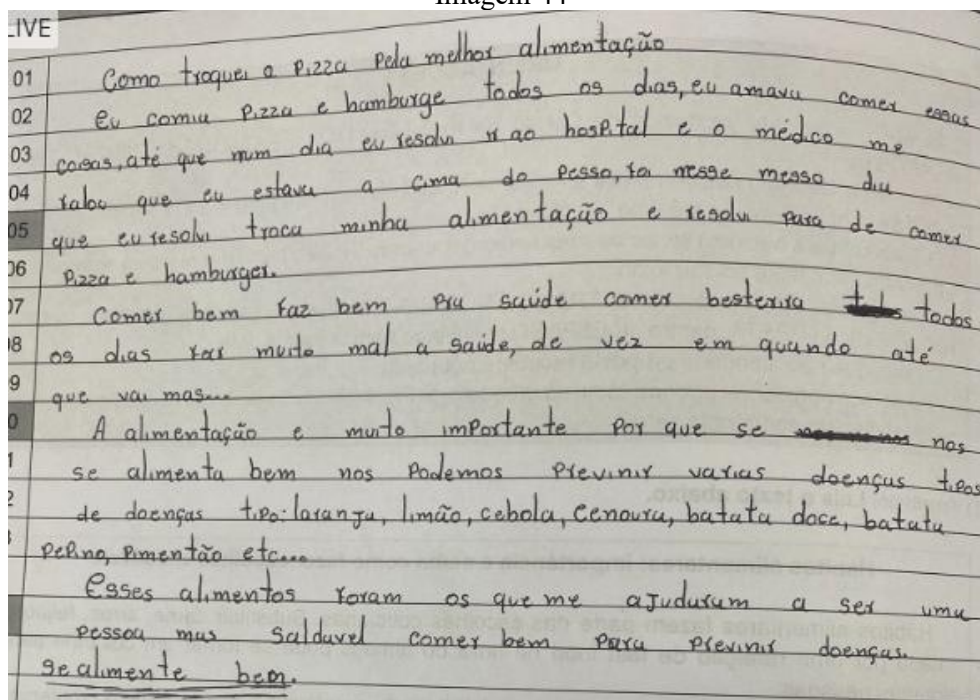 Imagem 44
LIVE
01 Como troquei a Pizza Pela melhor alimentação
02 Eu comia Pizza e hamburge todos os dias, eu amava comer essas
03 coisas, até que num dia eu resolvi ir ao hosPital e o médico me
04 falou que eu estava a cima do Pesso, foi nesse messo dia
05 que eu resolvi troca minha alimentação e resolvi para de comer
06 Pizza e hamburger.
07 Comer bem faz bem Pra saúde comer besterira todos
08 os dias faz muito mal a saúde, de vez em quando até
9 que vai mas...
0 A alimentação e muito imPortante Por que se nos
1 se alimenta bem nos Podemos Previnir varias doenças tiPos
2 de doenças tiPo: laranja, limão, cebola, cenoura, batata doce, batata
3 PePino, Pimentão etc...
Esses alimentos foram os que me aJudaram a ser uma
Pessoa mas saldavel comer bem Para Previnir doenças.
Se alimente bem.